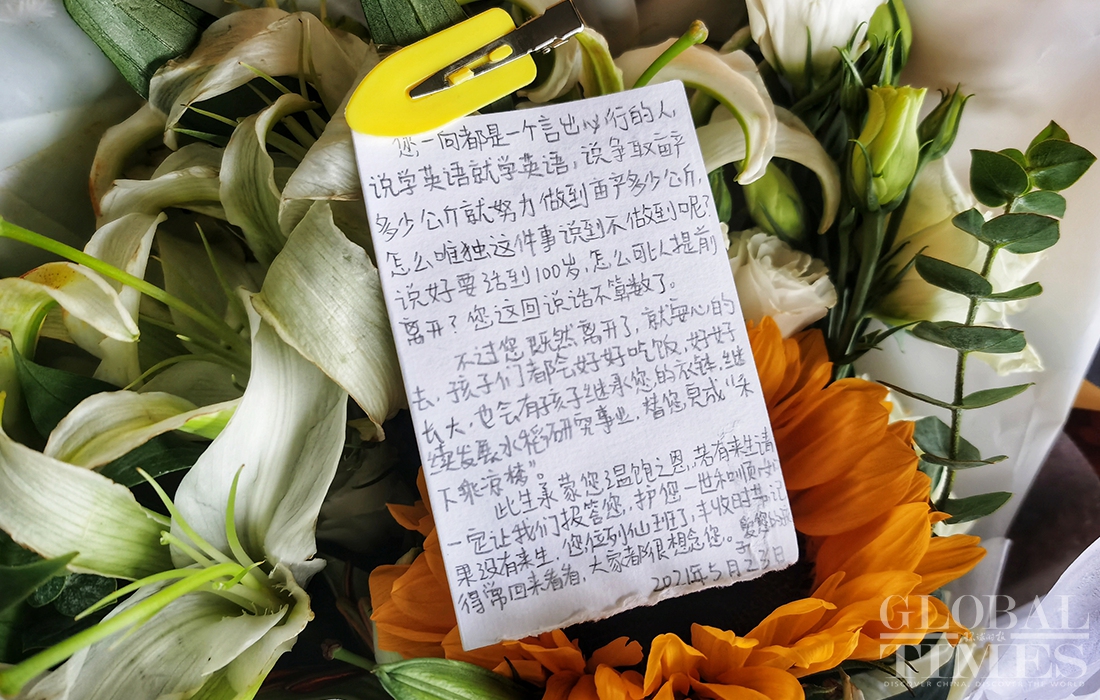 您一向都是一个言出必行的人,
说学英语就学英语,说争取亩产
多少公斤就努力做到亩产多少公斤,
怎么唯独这件事说到不做到呢?
说好要活到100岁,怎么可以提前
离开?您这回说话不算数了。
不过您既然离开了,就安心的
去,孩子们都会好好吃饭,好好
长大,也会有孩子继承您的衣钵,继
续发展水稻研究事业,替您完成“禾
下乘凉梦”。
此生承蒙您温饱之恩,若有来生请
一定让我们报答您,护您一世和顺。如
果没有来生,您位列仙班了,丰收时节记
得常回来看看,大家都很想念您。爱您的
2021年5月23日
GLOBAL
环球时报
TIMES
DISCOVER CHINA, DISCOVER THE WORLD